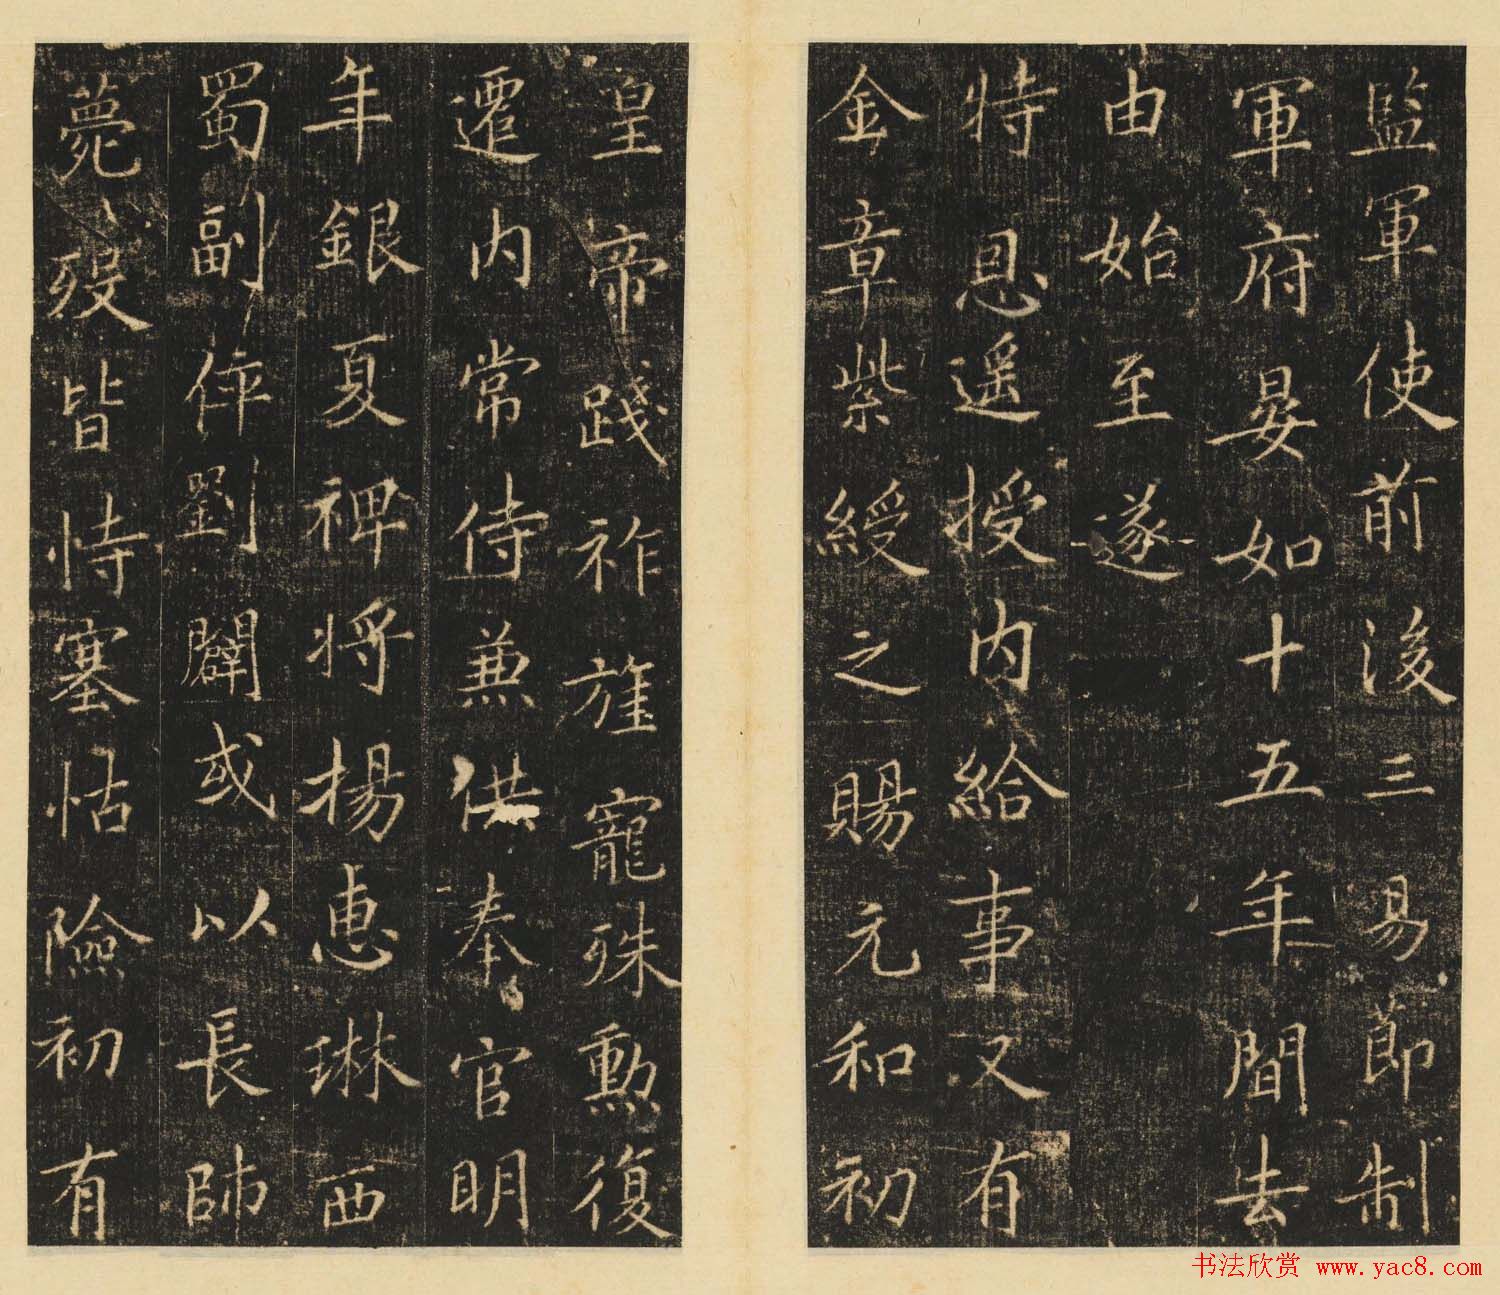 監軍使前後三易節制
軍府晏如十五年間去
由始至遂
特恩遥授内給事又有
金章紫綬之賜元和初
皇帝踐祚旌寵殊勳復
遷内常侍兼供奉官明
年銀夏裨將楊惠琳西
蜀副倅劉闢或以長帥
薨歿皆恃塞怙險初有
书法欣赏 www.yac8.com